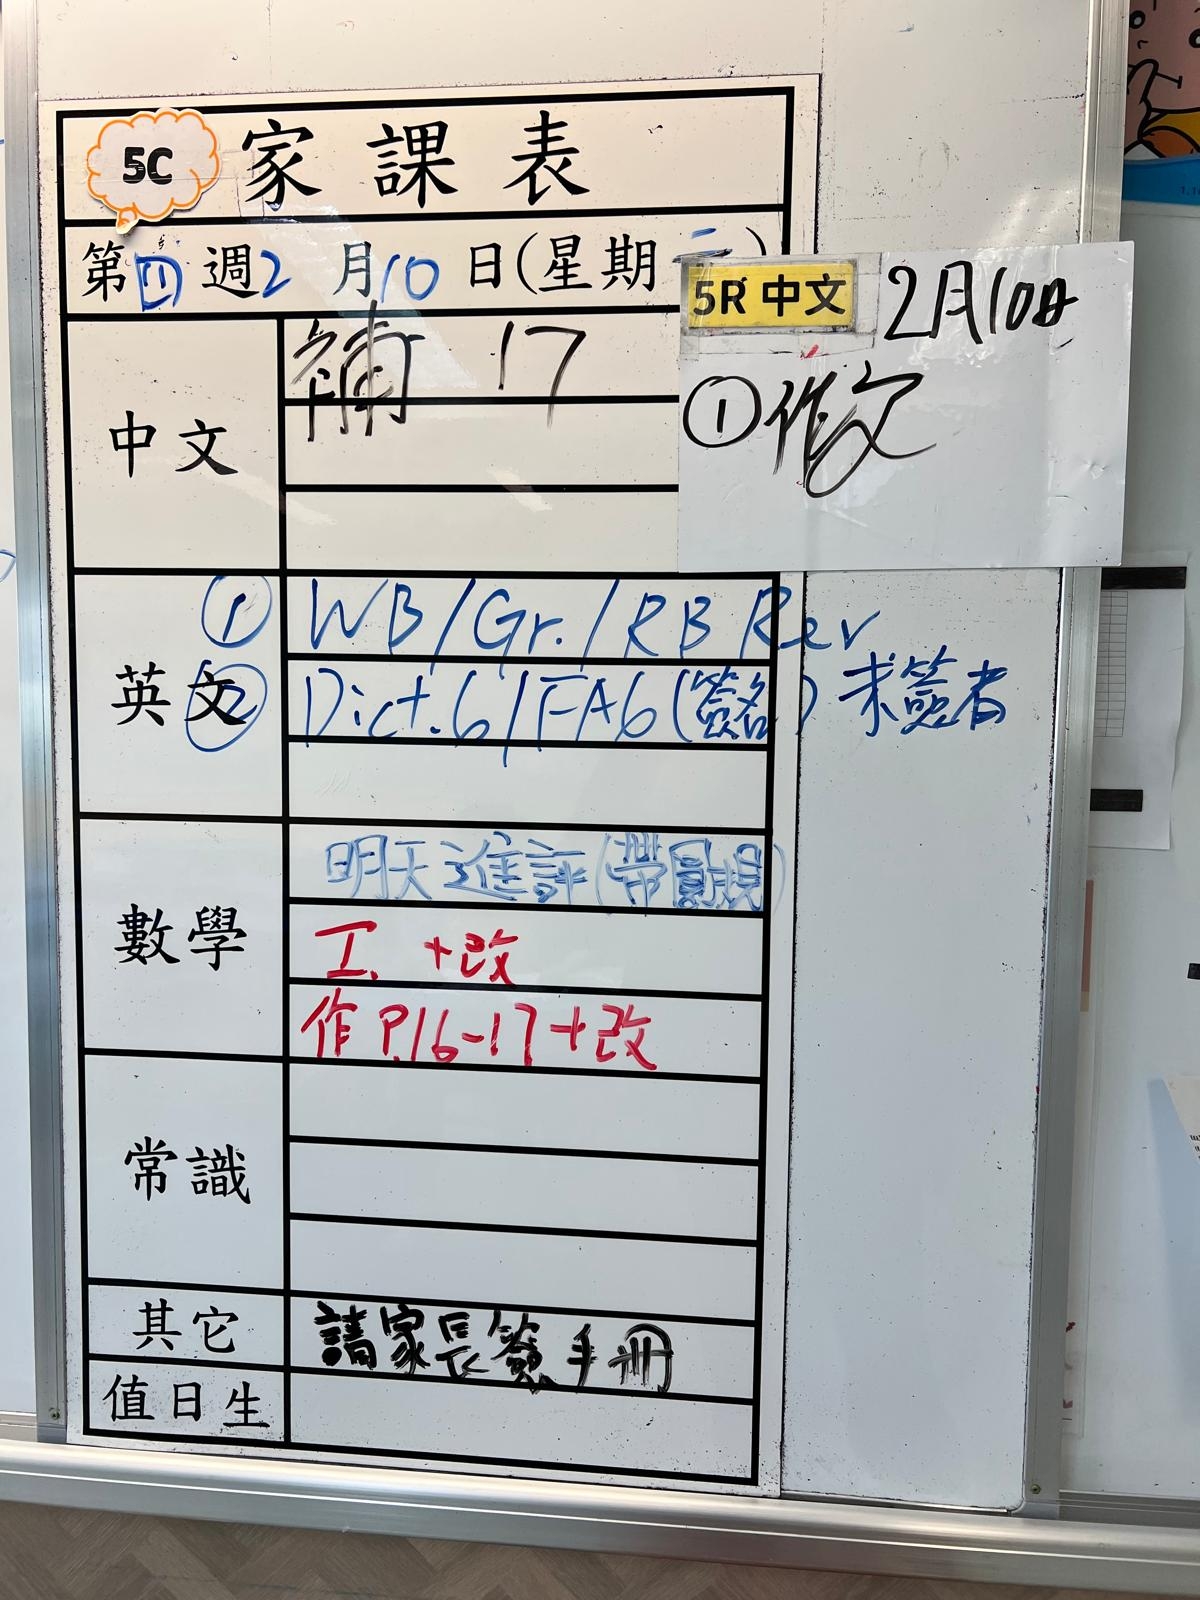 5C 家課表
第四週2月10日(星期二)
5R 中文 2月10日
① 作文
中文
補 17
英文
① WB/Gr./RB Rev
② Dict.6/FA6(簽名) 未簽者
數學
明天進評(帶圓規)
工. +改
作 P.16-17+改
常識
其它
請家長簽手冊
值日生